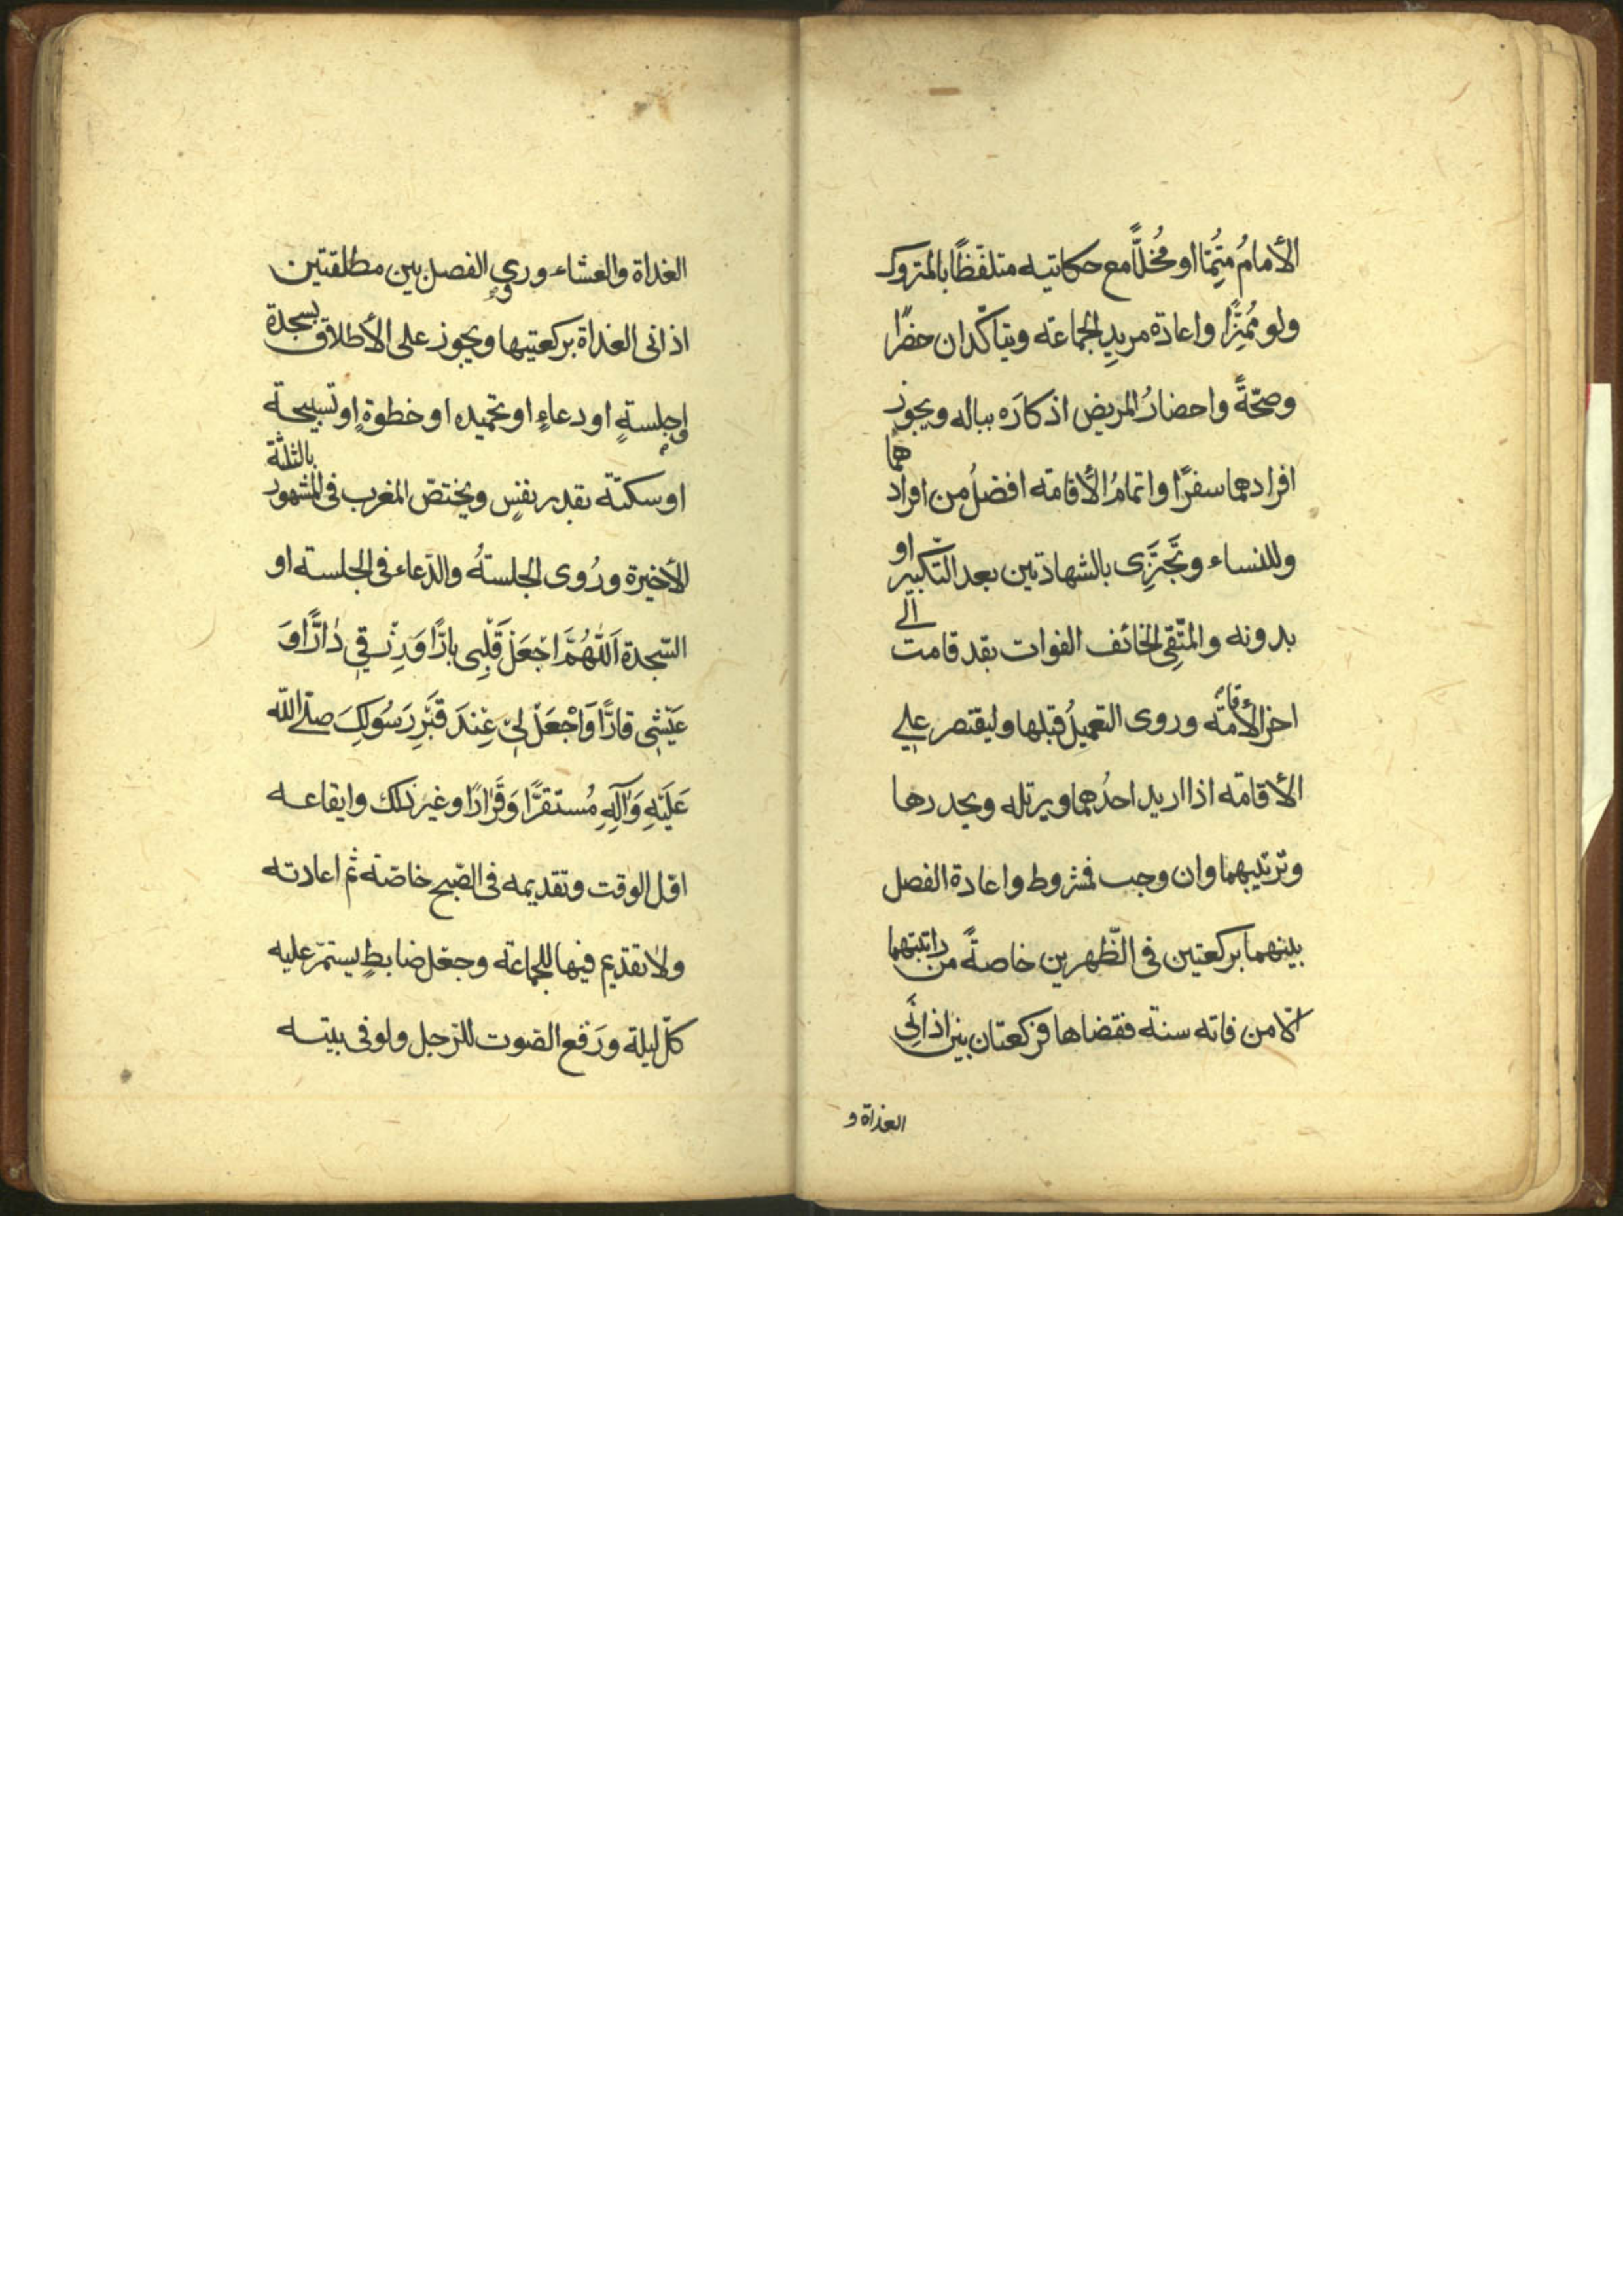 الأمامُ مُتِمًّا او مُخلًّا مع حكايته متلفظًا بالمتروك
ولو مُمَيِّزًا واعادة مريدِ الجماعة ويتاكّدان حضرًا
وصحّةً واحضارُ المريض اذكارَه بباله ويجوز
افرادهما سفرًا واتمامُ الأقامة افضلُ من افرادهما
وللنساء وتَجْتَزِى بالشهادتين بعد التّكبير او
بدونه والمتّقى الخائف الفوات بقد قامت الى
اخر الأقامة وروى التعميلُ قبلها وليقتصر على
الأقامة اذا اريد احدُهما ويرتله ويحدرها
وترتيبهما وان وجب فمشروط واعادة الفصل
بينهما بركعتين فى الظّهرين خاصةً من راتبتهما
الّا من فاته سنة فقضاها فركعتان بين اذانَىِ
الغداة و
الغداة والعشاء وروى الفصل بين مطلقتين
اذانى الغداة بركعتيها ويجوز على الأطلاق بسجدة
او جلسةٍ او دعاءٍ او تحميده او خطوةٍ او تسبيحة
او سكتة بقدر نفسٍ ويختصّ المغرب فى المشهور بالثلثة
الأخيرة ورُوى الجلسةُ والدّعاء فى الجلسة او
السّجدة اَللّٰهُمَّ اجْعَلْ قَلْبِى بارًّا وَرِزْقى دٰارًّا وَ
عَيْشِى قارًّا وَاجْعَلْ لِىْ عِنْدَ قَبْرِ رَسُولِكَ صلّى اللّه
عَلَيْهِ وَآلِهِ مُستقرًّا وَقَرٰارًا وغير ذلك وايقاعه
اوّل الوقت وتقديمه فى الصّبح خاصّة ثم اعادته
ولا تقديم فيها للجماعة وجعْل ضابطٍ يستمرّ عليه
كلّ ليلة ورَفع الصّوت للرّجل ولو فى بيته